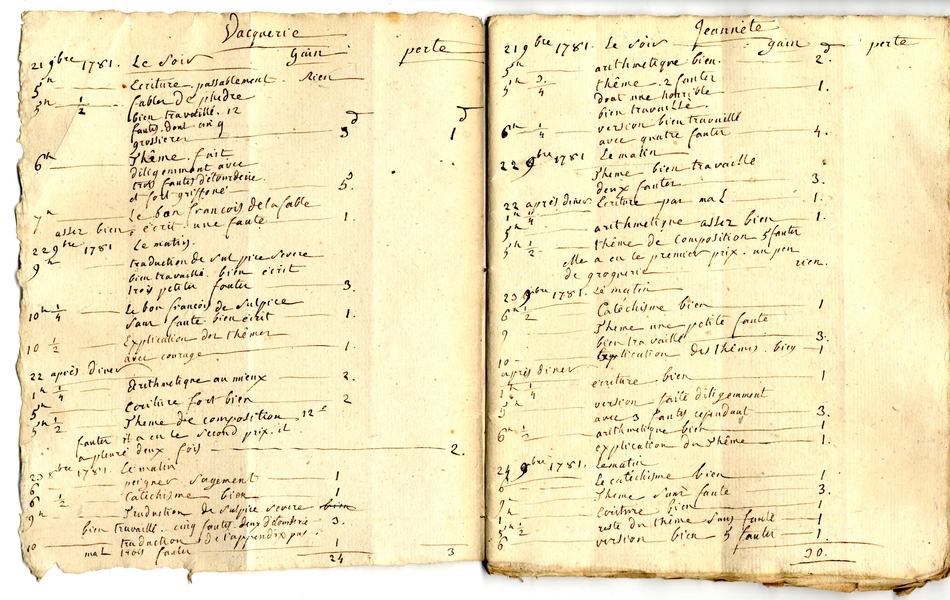 Vacquerie
21 9bre 1781. Le Soir gain perte
5h Ecriture passablement - Rien
5h 1/2 fables de phedre
bien travaillé. 12
fautes. dont un 9
grossieres 3 1
6h Thême fait
diligemment avec
trois fautes d'etourderie
et fort griffoné 5.
7h Le bon françois de la fable
assez bien écrit une faute 1.
22 9bre 1781 Le matin.
9h traduction de Sulpice Severe
bien travaillé. bien écrit
trois petites fautes 3.
10h 1/4 Le bon françois de Sulpice
Sans faute bien écrit 1.
10 1/2 Explication des thêmes
avec courage 1.
22 après diner
1h 1/4 Arithmetique au mieux 2.
5h Ecriture fort bien 2
5h 1/2 Theme de composition. 12
fautes il a eu le Second prix. il
a pleuré deux fois 2.
23 9bre 1781. Le matin
6 peigner Sagement 1
6 1/2 Catéchisme bien 1
9h Traduction de Sulpice Severe bien
bien travaillé. cinq fautes deux d'étourderie 3.
10 traduction de l'appendix pas
mal trois fautes 1
24 3
Jeannéte
21 9bre 1781. Le Soir gain perte
5h arithmetique bien. 2.
5h 3/4 thême. 2 fautes
dont une horrible 1.
bien travaillé.
6h 1/4 version bien travaillé
avec quatre fautes 4.
22 9bre 1781 Le matin
Theme bien travaillé
deux fautes 3.
22 après diner Ecriture pas mal 1.
1h 1/4 arithmetique assez bien 1.
5h 1/2 thême de composition 5 fautes
elle a eu le premier prix. un peu
de grognerie rien.
23 9bre 1781. Le matin
6h 1/2 Catéchisme bien 1
9 Theme une petite faute
bien travaillé 3.
10 Explication des thêmes. bien 1
après diner
1h 1/4 ecriture bien 1
5h version faite diligemment
avec 3 fautes cependant 3.
6h 1/2 arithmetique bien 1.
explication du Thême 1.
24 9bre 1781. Le matin
6 Le catéchisme bien 1
9 Theme sans faute 3.
1h Ecriture bien 1
5h 1/2 reste du thême Sans faute 1
6 version bien 5 fautes 1.
30.